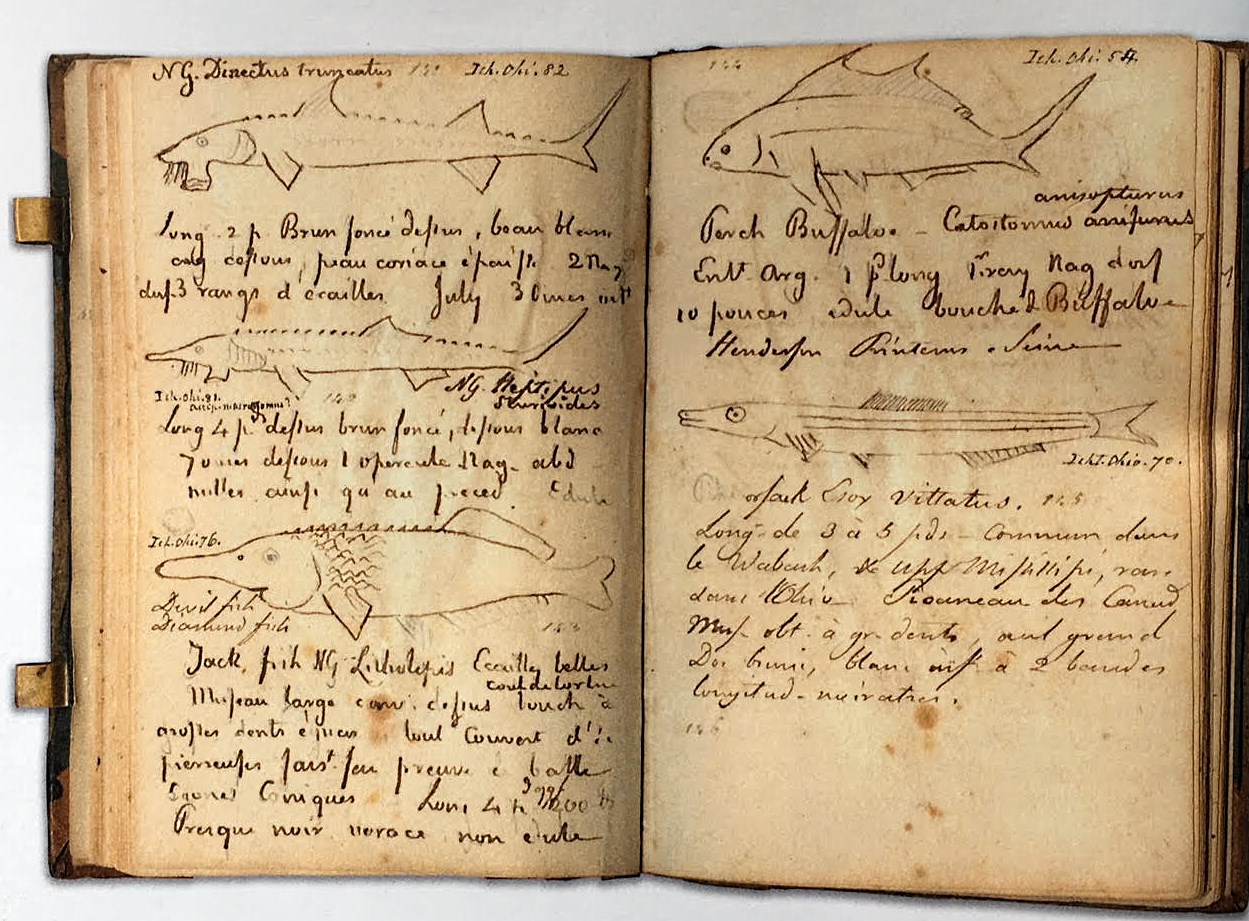 NG. Dinectus truncatus Ich. Ohi. 82
Long 2 p. Brun foncé dessus, beau blanc
dessous, peau coriace épaisse 2 Nag
3 rangs d'ecailles July 30
NG. Heptipus
Sturioides
Ich. Ohi. 81.
Long 4 p. dessus brun foncé, dessous blanc
dessous 1 opercule Nag. abd
nulles ainsi qu'au preced Edule
Ich. Ohi. 76.
Devil fish
Diamond fish 143
Jack fish NG Litholepis Ecailles belles
coul de
Museau large conv. dessus bouch à
grosses dents tout couvert d'
pierreuses fais feu preuve balle
Coniques Long 4 400
Presque noir vorace non edule
144 Ich. Ohi. 54.
anisopturus
Perch Buffaloe - Catostomus anisurus
Ent Arg. 1 long Nag dors
10 pouces edule bouche d Buffaloe
Henderson Printems Seine
Icht. Ohio. 70.
or Jack Esox Vittatus. 145
Long. de 3 à 5 pds - Commun dans
le Wabash, & upp Missisipi, rare
dans l'Ohio des Canad
Mus. obt. à gr. dents, œuil grand
Dos brun, blanc inf. à 2 bandes
longitud. noiratres.
146